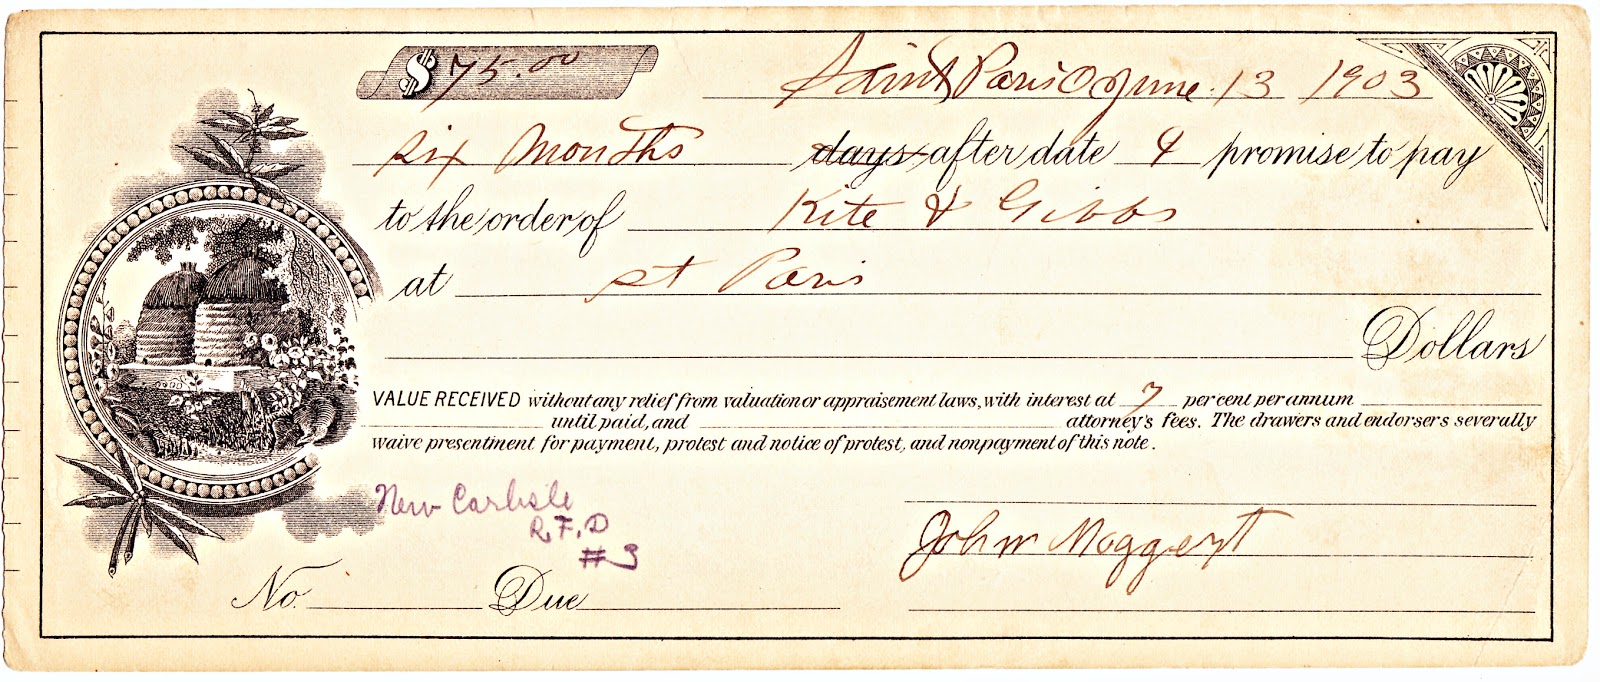 $75.00
Saint Paris O June 13 1903
six Months days after date I promise to pay
to the order of Kite & Gibbs
at st Paris
Dollars
VALUE RECEIVED without any relief from valuation or appraisement laws, with interest at 7 per cent per annum
until paid, and attorney's fees. The drawers and endorsers severally
waive presentment for payment, protest and notice of protest, and nonpayment of this note.
New Carlisle
R.F.D
#3
John Moggert
No. Due